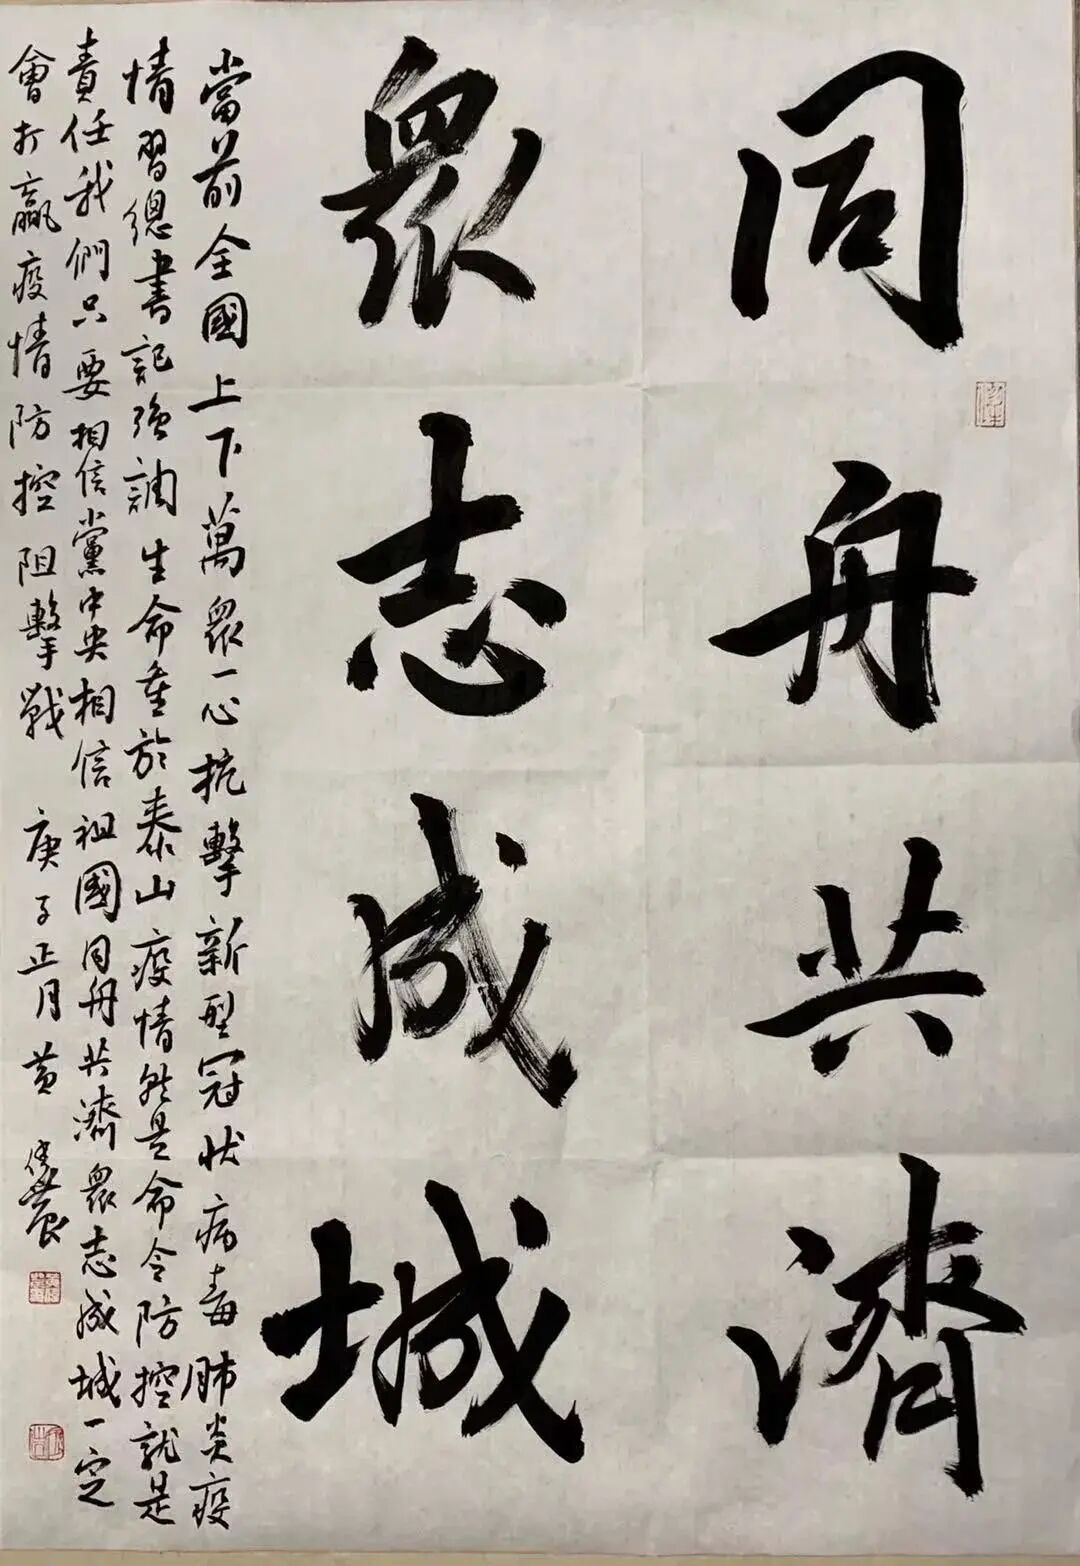 同舟共濟
眾志成城
當前全國上下萬眾一心抗擊新型冠狀病毒肺炎疫
情習總書記強調生命重於泰山疫情就是命令防控就是
責任我們只要相信黨中央相信祖國同舟共濟眾志成城一定
會打贏疫情防控阻擊戰 庚子正月 黃